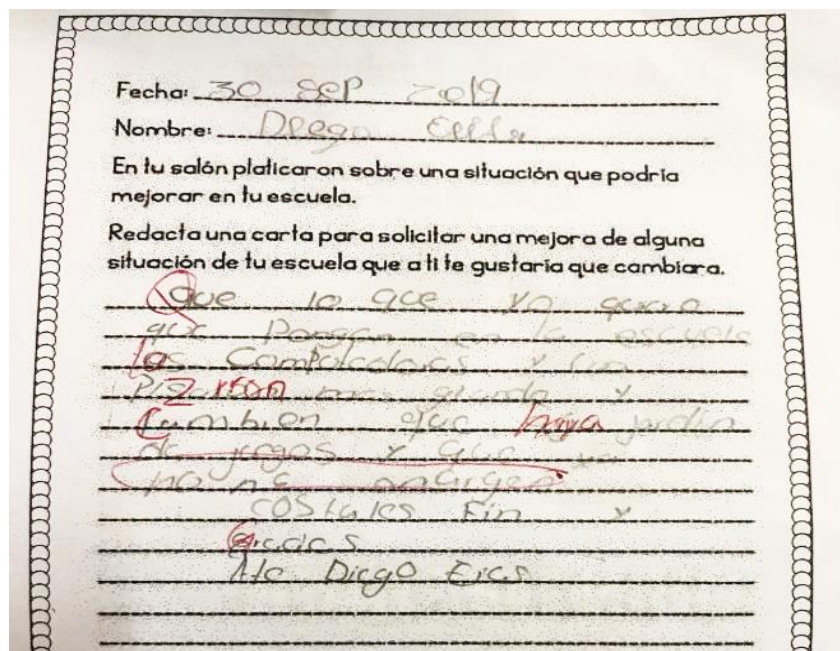 Fecha: 30 SEP 2019
Nombre: Diego
En tu salón platicaron sobre una situación que podría
mejorar en tu escuela.
Redacta una carta para solicitar una mejora de alguna
situación de tu escuela que a ti te gustaría que cambiara.
Que lo que yo
que Pongan en la escuela
las y un
Pizarron mas grande y
tambien que haya jardin
de jegos y que
no me
costales Fin y
Ate Diego